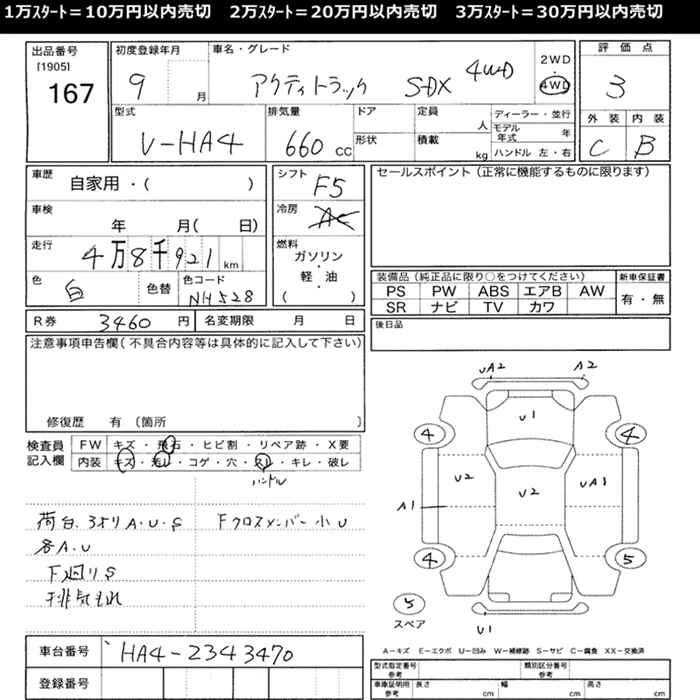 1万スタート＝10万円以内売切　2万スタート＝20万円以内売切　3万スタート＝30万円以内売切
出品番号
[1905]
167
初度登録年月
9 月
車名・グレード
アクティトラック SDX 4WD
2WD
・
4WD
評価点
3
外装 内装
C B
型式
V-HA4
排気量
660 cc
ドア
形状
定員
人
積載
kg
ディーラー・並行
モデル年式 年
ハンドル 左・右
車歴
自家用・( )
車検
年 月( 日)
走行
4万8千921 km
色
白
色替
色コード
NH528
シフト
F5
冷房
AC
燃料
ガソリン
・
軽・油
( )
セールスポイント (正常に機能するものに限ります)
装備品 (純正品に限り○をつけてください)
PS PW ABS エアB AW
SR ナビ TV カワ
新車保証書
有・無
R券 3460 円 名変期限 月 日
後日品
注意事項申告欄(不具合内容等は具体的に記入して下さい)
修復歴 有 (箇所 )
検査員
記入欄
FW キズ・飛石・ヒビ割・リペア跡・X要
内装 キズ・汚レ・コゲ・穴・スレ・キレ・破レ
ハンドル
荷台、3方リA・U・S
Fクロスメンバー小U
各A・U
下廻りS
排気もれ
UA2 A2
U1
4 4
U2 U2 UA1
A1
4 5
5
スペア
U1
A－キズ E－エクボ U－凹み W－補修跡 S－サビ C－腐食 XX－交換済
車台番号
HA4-2343470
登録番号
型式指定番号
参考
類別区分番号
参考
車庫証明用
参考
長さ cm 幅 cm 高さ cm